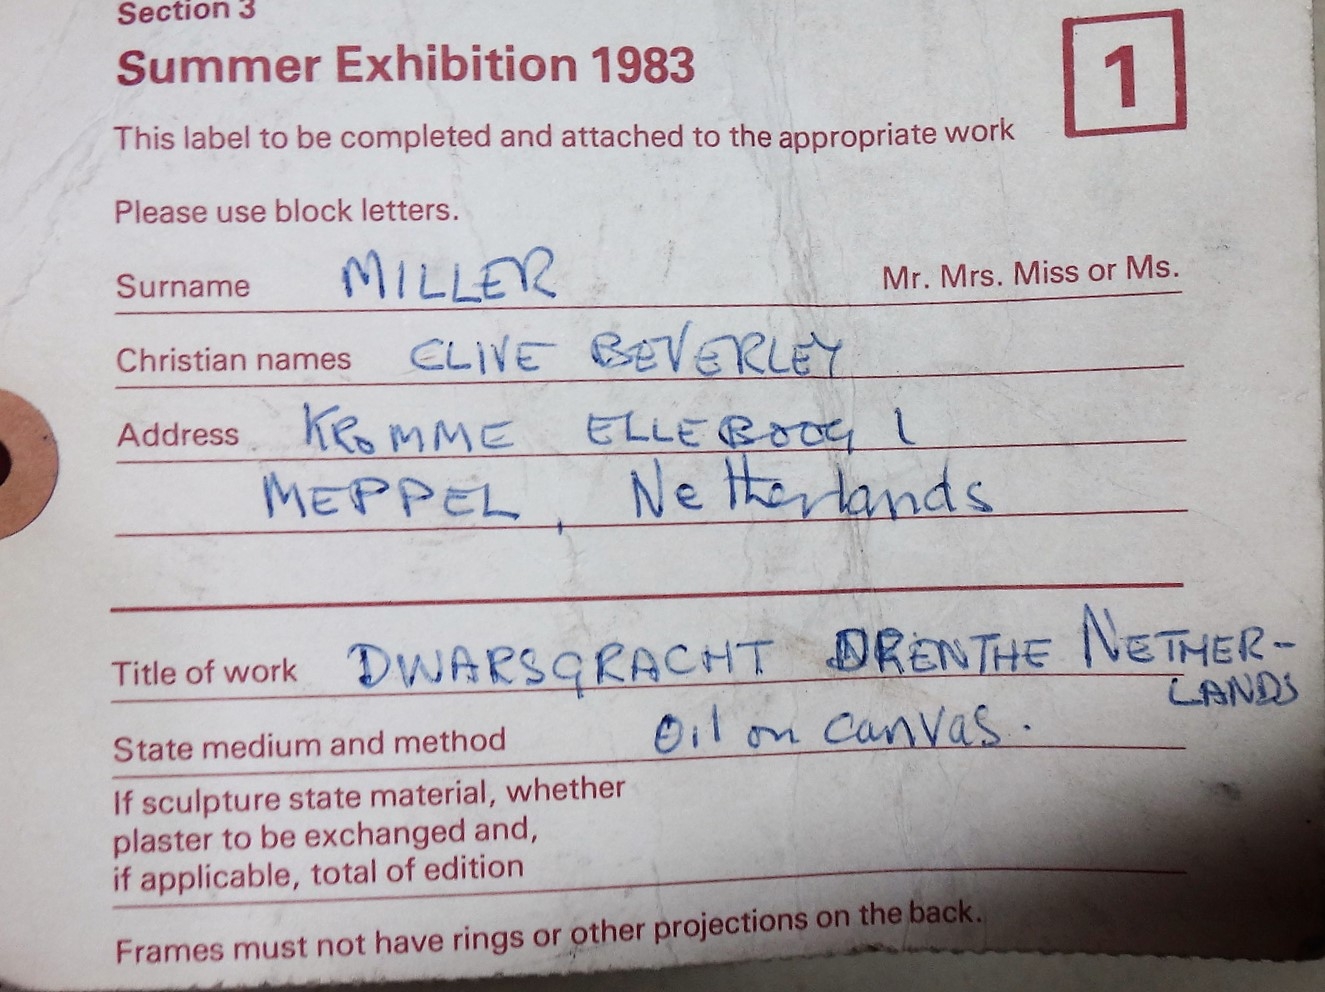 Section 3
Summer Exhibition 1983
1
This label to be completed and attached to the appropriate work
Please use block letters.
Surname MILLER Mr. Mrs. Miss or Ms.
Christian names CLIVE BEVERLEY
Address KROMME ELLEBOOG 1
MEPPEL, Netherlands
Title of work DWARSGRACHT DRENTHE NETHER-
LANDS
State medium and method Oil on canvas.
If sculpture state material, whether
plaster to be exchanged and,
if applicable, total of edition
Frames must not have rings or other projections on the back.